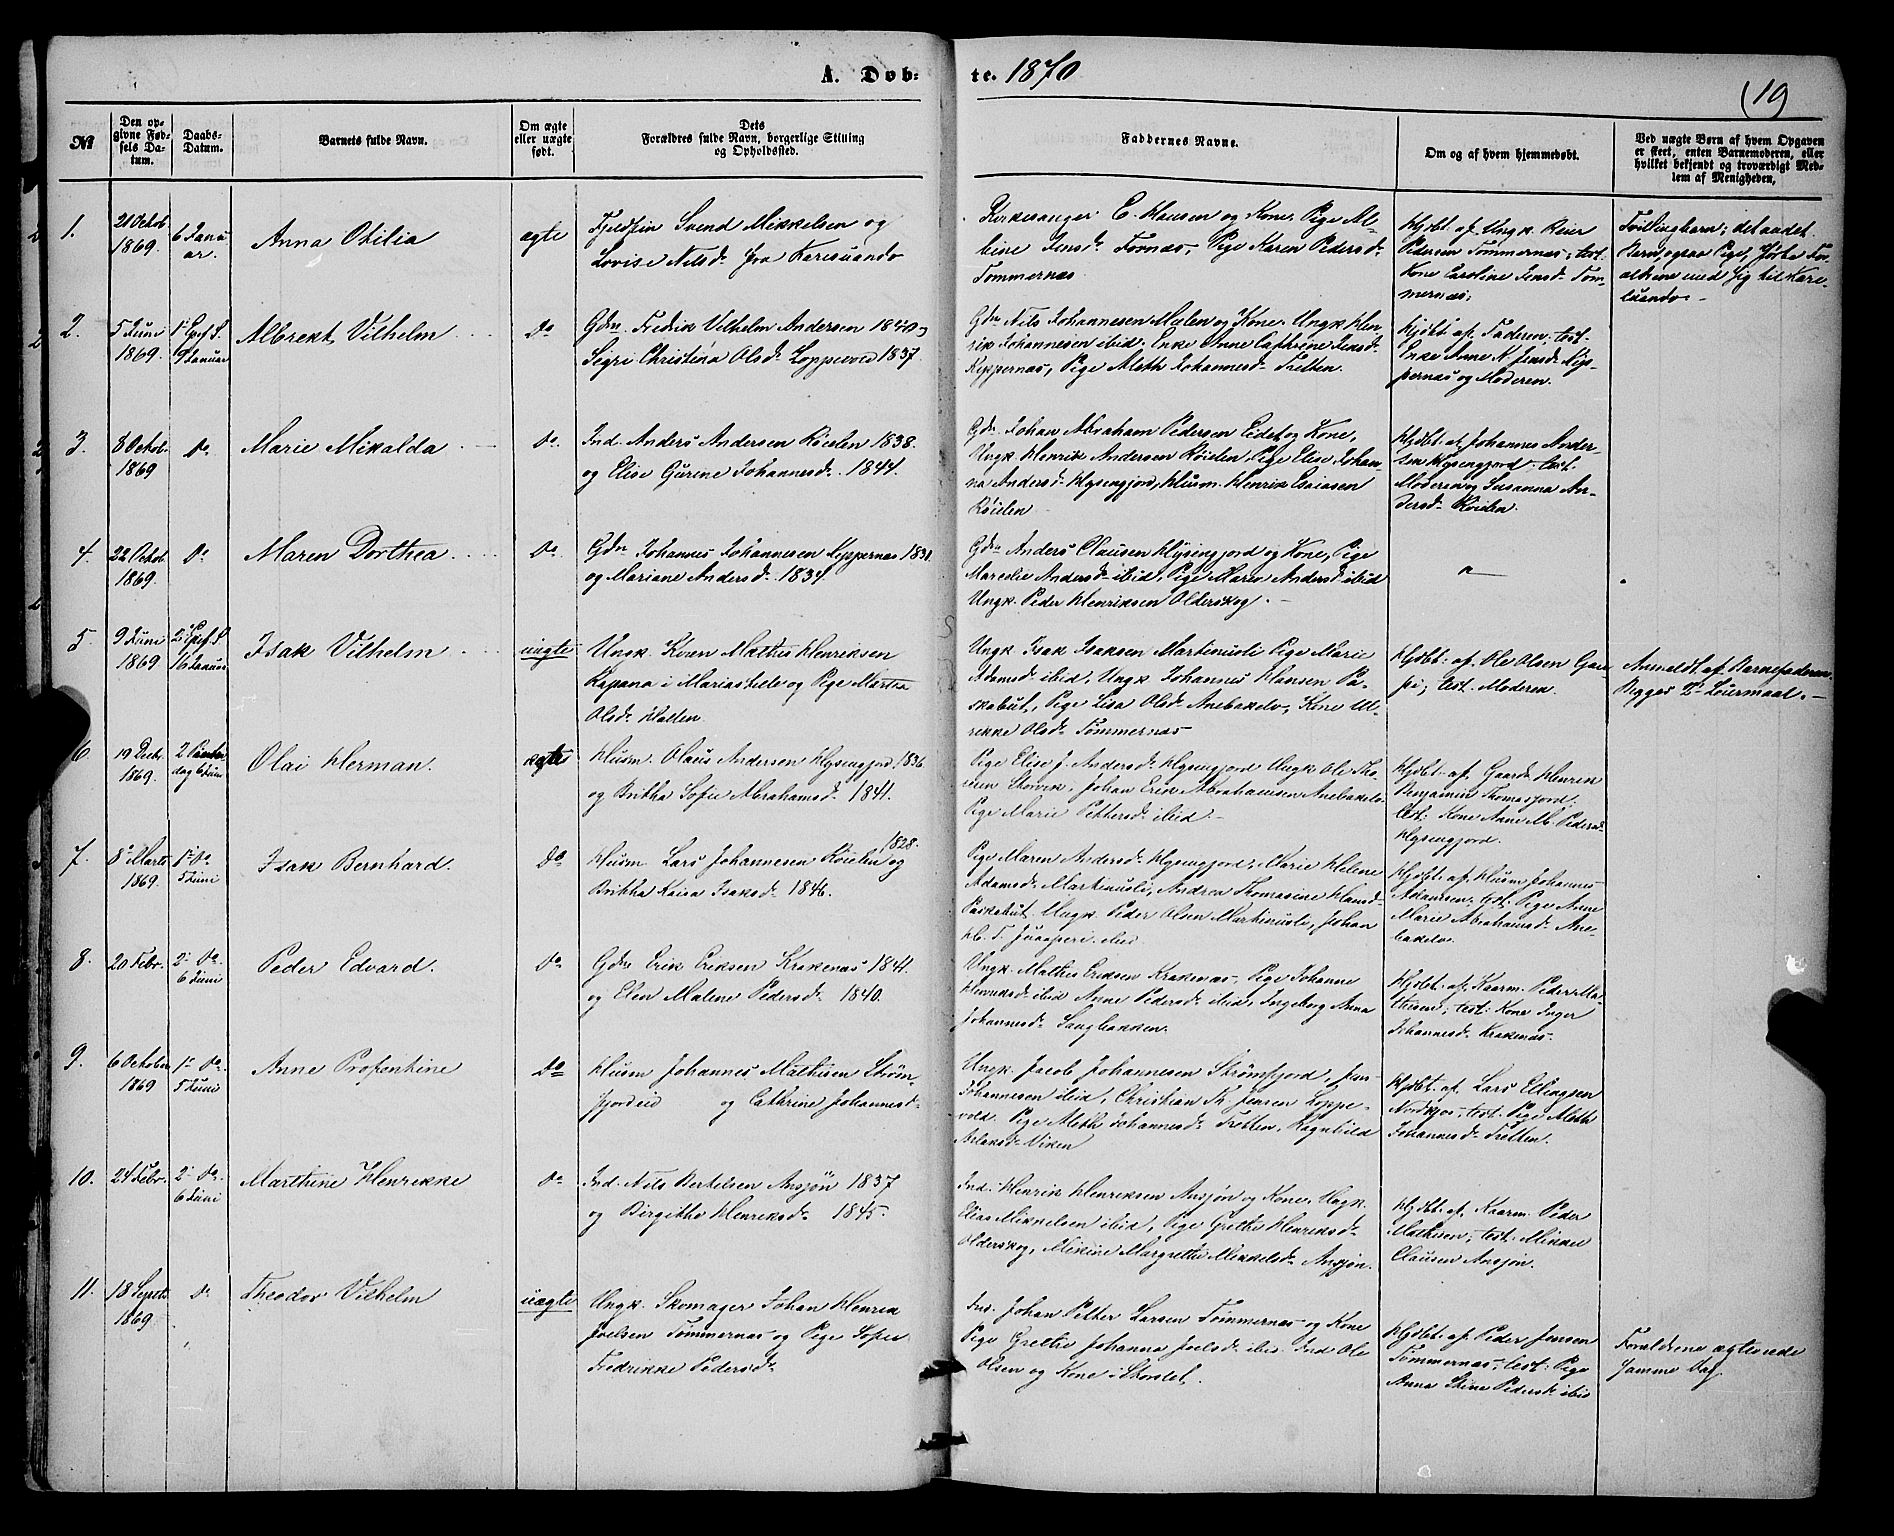 A. Døb-
te. 1870
(19
№
Den op-
givne Fød-
sels Da-
tum.
Daabs-
Datum.
Barnets fulde Navn.
Om ægte
eller uægte
født.
Dets
Forældres fulde Navn, borgerlige Stilling
og Opholdssted.
Faddernes Navne.
Om og af hvem hjemmedøbt.
Ved uægte Børn af hvem Opgaven
er skeet, enten Barnemoderen, eller
hvilket bekjendt og troværdigt Med-
lem af Menigheden,
1.
21 Octob
1869.
6 Janu
ar.
Anna Otilia
ægte
Fjeldfin Svend Mikkelsen og
Lovise Nilsd. fra Karesuando
Kirkesanger E. Hansen og Kone, Pige Al-
bine Jensd. Tornæs, Pige Karen Pedersd.
Tømmernæs
Hjdbt. af Ungk. Reier
Pedersen Tømmernæs; test.
Kone Caroline Jensd. Tøm-
mernæs.
Tvillingbarn; det andet
Barn, ogsaa Pige, førte For-
ældrene med sig til Kare-
suando.
2.
5 Juni
1869.
1 Epif. S.
9 Januar
Albrekt Vilhelm
do
Gdm. Fredrik Vilhelm Andersen 1840 og
Sigri Christina Olsd. Loppevold 1837.
Gdm Nils Johannesen Malen og Kone, Ungk Hen-
rik Johannesen ibid, Enke Anne Cathrine Jensd.
Keppernæs, Pige Meth Johannesd. Tretten.
Hjdbt. af Faderen. test.
Enke Anne K. Jensd. Kep-
pernæs og Moderen.
3.
8 Octob.
1869
do
Marie Mikalda
do.
Ind. Anders Andersen Røielen 1838.
og Elise Gurine Johannesd. 1844.
Gdm Johan Abraham Pedersen Eidet og Kone,
Ungk Henrik Andersen Røielen, Pige Elise Johan-
na Andersd. Hysingjord, Husm. Henrik Esaiasen
Røielen
Hjdbt. af Johannes Ander-
sen Hysengjord. test.
Moderen og Susanna An-
dersd. Røielen.
4.
22 Octob.
1869.
do
Maren Dorthea
do.
Gdm Johannes Johannesen Keppernæs 1831.
og Mariane Andersd. 1834.
Gdm Anders Clausen Hysingjord og Kone, Pige
Marcelie Andersd. ibid, Pige Maren Andersd. ibid
Ungk. Peder Henriksen Olderskog.
5.
9 Juni
1869
2 Epif. S.
16 Januar
Isak Vilhelm
uægte
Ungk. Kvæn Mathis Henriksen
Kapana i Mariashele og Pige Martha
Olsd. Halten.
Ungk. Isak Isaksen Martinusli Pige Marie
Adamsd. ibid, Ungk Johannes Hansen Pa-
skabut, Pige Lisa Olsd. Anebakelv, Kone Ul-
rikke Olsd. Tømmernæs
Hjdbt. af. Ole Olsen Gau-
pi; test. Moderen.
Anmeldt af Barnefaderen.
Begges 2det Leiermaal.
6
19 Decbr.
1869.
2 Pintse
dag 6 Juni
Olai Herman.
ægte
Husm. Olaus Andersen Hysengjord. 1836
og Britha Sofie Abrahamsd. 1841.
Pige Elise J. Andersd. Hysengjord Ungk Ole Tho-
esen Storvik, Johan Erik Abrahamsen Anebakelv
Pige Marie Pettersd. ibid
Hjdbt. af. Gaardm Henrik
Benjamin Thomasjord.
test: Kone Anne M. Pedersd.
Hysengjord.
7.
8 Marts
1869.
1 do
5 Juni
Isak Bernhard.
do
Husm Lars Johannesen Røielen og 1828.
Britha Kaisa Isaksd. 1846.
Pige Maren Andersd. Hysengjord, Marie Helene
Adamsd. Martinusli, Andrea Thomasine Hansd.
Paskabut. Ungk. Peder Olsen Martinusli, Johan
H. T. Juusperi ibid.
Hjdbt. af. Husm Johannes
Adamsen, test. Pige Anne
Marie Abrahamsd. Ane-
bakelv.
8.
20 Febr.
2 do
6 Juni
Peder Edvard.
do
Gdm Erik Eriksen Krakenæs 1841.
og Elen Malene Pedersd. 1840.
Ungk. Mathis Eriksen Krakenæs, Pige Johanne
Henriksd. ibid Anne Pedersd. ibid, Ingeborg Anna
Johannesd. Langbakken.
Hjdbt. af. Kaarm. Peder Ma-
thisen; test: Kone Inger
Johannesd. Krakenæs.
9.
6 October
1869
1 do.
5 Juni
Anne Profentine
do
Husm Johannes Mathisen Strøm-
fjordeid og Cathrine Johannesd.
Ungk. Jacob Johannesen Strømfjord, Jens
Johannesen ibid, Christian Th. Jensen Loppe-
vold. Pige Meth Johannesd. Tretten, Ragnhild
Aslaksd. Viken
Hjdbt. af. Lars Ellingsen
Nordkjos, test. Pige Meth
Johannesd. Tretten.
10.
24 Febr.
2 do.
6 Juni
Marthine Henrikke
do
Ind. Nils Bertelsen Ansjøn 1837
og Birgitha Henriksd. 1845.
Ind. Henrik Henriksen Ansjøn og Kone, Ungk.
Elias Mikkelsen ibid, Pige Grethe Henriksd.
Olderskog, Mikine Margrethe Mikkelsd. Ansjøn.
Hjdbt. af. Kaarm. Peder
Mathisen, test. Mikkel
Clausen Ansjøn.
11.
18 Septb.
1869
do
Theodor Vilhelm
uægte
Ungk. Skomager Johan Henrik
Joelsen Tømmernæs og Pige Sofie
Fredrikke Pedersd.
Ind. Johan Petter Larsen Tømmernæs og Kone
Pige Grethe Johanna Joelsd. ibid. Ind Ole
Olsen og Kone i Storslet.
Hjdbt. af. Peder Jensen
Tømmernæs, test: Pige
Anna Stine Pedersd. ibid
Forældrene ægteviede
samme Dag.